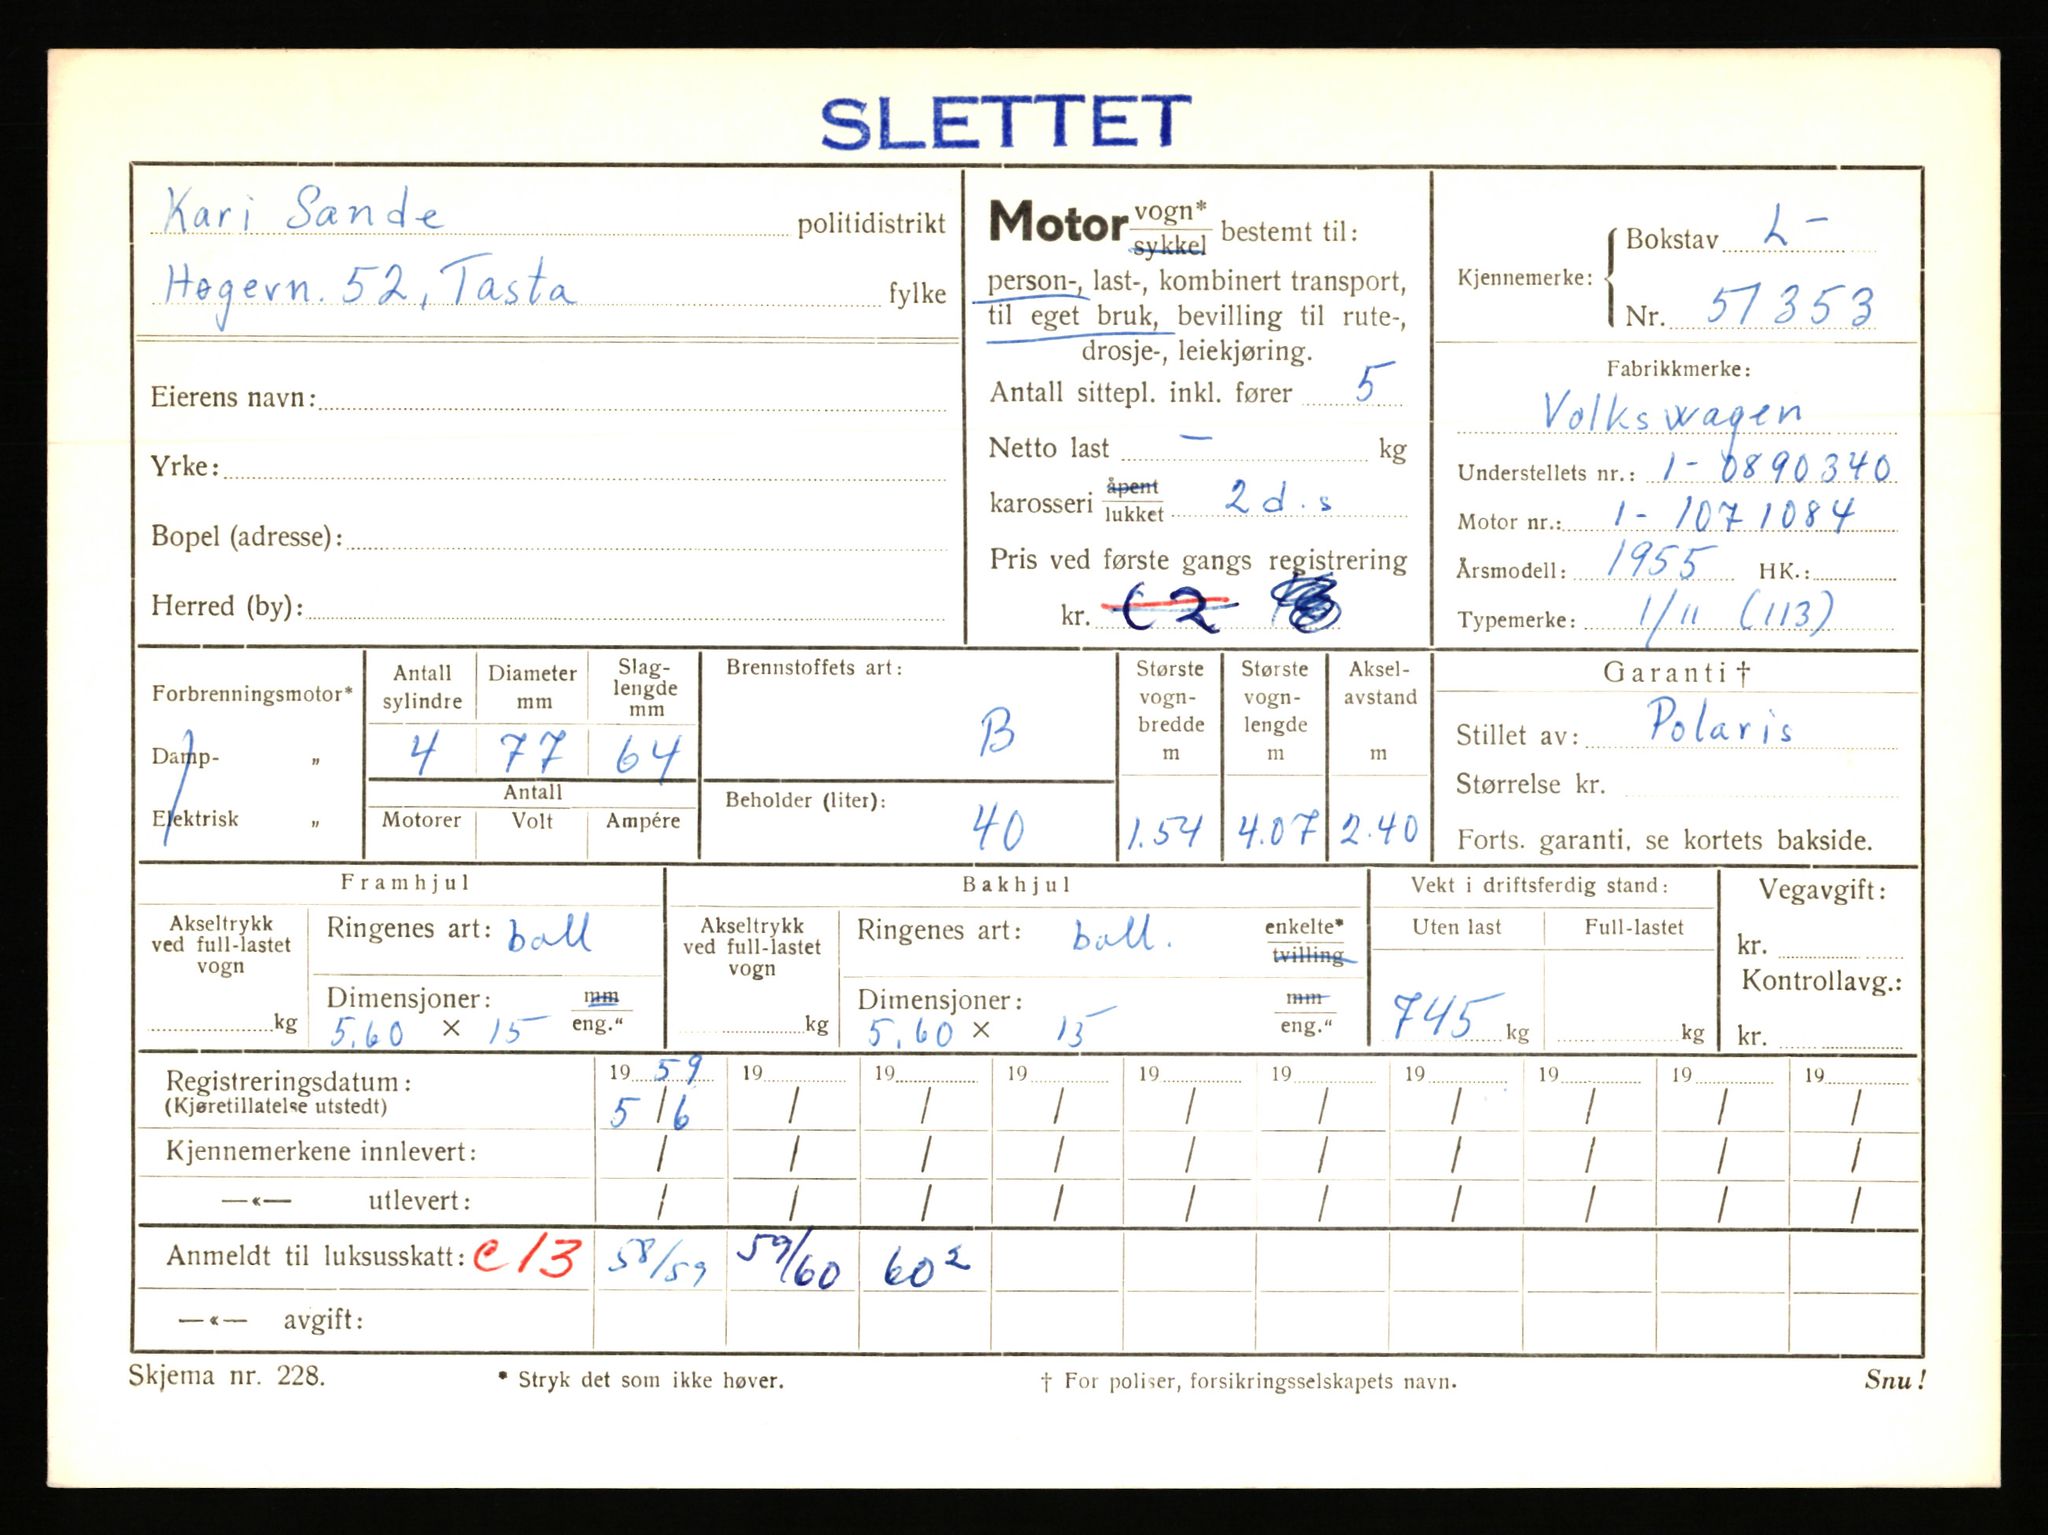 SLETTET
Kari Sande politidistrikt
Høgevn. 52, Tasta fylke
Eierens navn:
Yrke:
Bopel (adresse):
Herred (by):
Motor vogn* sykkel bestemt til:
person-, last-, kombinert transport,
til eget bruk, bevilling til rute-,
drosje-, leiekjøring.
Antall sittepl. inkl. fører 5
Netto last — kg
karosseri åpent lukket 2 d.s
Pris ved første gangs registrering
kr. C 2
Kjennemerke: Bokstav L-
Nr. 51353
Fabrikkmerke:
Volkswagen
Understellets nr.: 1-0890340
Motor nr.: 1-1071084
Årsmodell: 1955 HK.:
Typemerke: 1/11 (113)
Forbrenningsmotor*
Damp- „
Elektrisk „
Antall sylindre Diameter mm Slag-lengde mm
4 77 64
Antall
Motorer Volt Ampére
Brennstoffets art:
B
Beholder (liter):
40
Største vogn-bredde m Største vogn-lengde m Aksel-avstand m
1.54 4.07 2.40
Garanti †
Stillet av: Polaris
Størrelse kr.
Forts. garanti, se kortets bakside.
Framhjul
Akseltrykk ved full-lastet vogn
kg
Ringenes art: ball
Dimensjoner: mm
5.60 × 15 eng."
Bakhjul
Akseltrykk ved full-lastet vogn
kg
Ringenes art: ball. enkelte* tvilling
Dimensjoner: mm
5.60 × 15 eng."
Vekt i driftsferdig stand:
Uten last Full-lastet
745 kg kg
Vegavgift:
kr.
Kontrollavg.:
kr.
Registreringsdatum: 19 59 19 19 19 19 19 19 19 19 19
(Kjøretillatelse utstedt) 5/6 / / / / / / / / /
Kjennemerkene innlevert: / / / / / / / / / /
—«— utlevert: / / / / / / / / / /
Anmeldt til luksusskatt: C13 58/59 59/60 60²
—«— avgift:
Skjema nr. 228. * Stryk det som ikke høver. † For poliser, forsikringsselskapets navn. Snu!